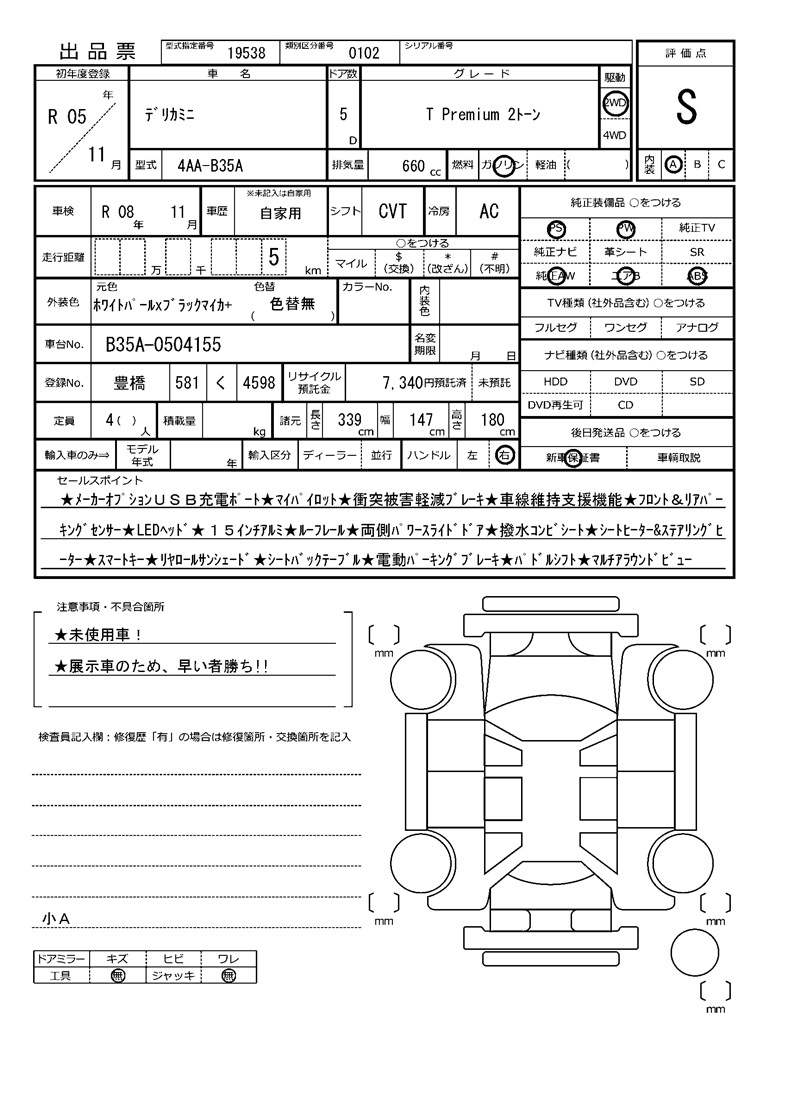 出品票 型式指定番号 19538 類別区分番号 0102 シリアル番号
評価点
初年度登録 車名 ドア数 グレード 駆動
R 05 年 11 月 デリカミニ 5 D T Premium 2トーン 2WD 4WD
S
型式 4AA-B35A 排気量 660 cc 燃料 ガソリン 軽油 ( )
内装 A B C
車検 R 08 年 11 月 車歴 ※未記入は自家用 自家用 シフト CVT 冷房 AC
純正装備品 ○をつける
PS PW 純正TV
走行距離 万 千 5 km ○をつける マイル $ (交換) * (改ざん) # (不明)
純正ナビ 革シート SR
純正AW エアB ABS
外装色 元色 ホワイトパールxブラックマイカ+ 色替 ( 色替無 ) カラーNo. 内装色
TV種類 (社外品含む) ○をつける
フルセグ ワンセグ アナログ
車台No. B35A-0504155 名変期限 月 日
ナビ種類 (社外品含む) ○をつける
登録No. 豊橋 581 く 4598 リサイクル預託金 7,340円預託済 未預託
HDD DVD SD
DVD再生可 CD
定員 4 ( ) 人 積載量 kg 諸元 長さ 339 cm 幅 147 cm 高さ 180 cm
後日発送品 ○をつける
輸入車のみ⇒ モデル年式 年 輸入区分 ディーラー 並行 ハンドル 左 右
新車保証書 車輌取説
セールスポイント
★メーカーオプションUSB充電ポート★マイパイロット★衝突被害軽減ブレーキ★車線維持支援機能★フロント&リアパー
キングセンサー★LEDヘッド★15インチアルミ★ルーフレール★両側パワースライドドア★撥水コンビシート★シートヒーター&ステアリングヒ
ーター★スマートキー★リヤロールサンシェード★シートバックテーブル★電動パーキングブレーキ★パドルシフト★マルチアラウンドビュー
注意事項・不具合箇所
★未使用車！
★展示車のため、早い者勝ち!!
mm
mm
検査員記入欄：修復歴「有」の場合は修復箇所・交換箇所を記入
小A
mm
mm
ドアミラー キズ ヒビ ワレ
工具 無 ジャッキ 無
mm